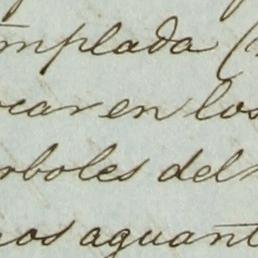 mplada (
car en los
rboles del
os aguant